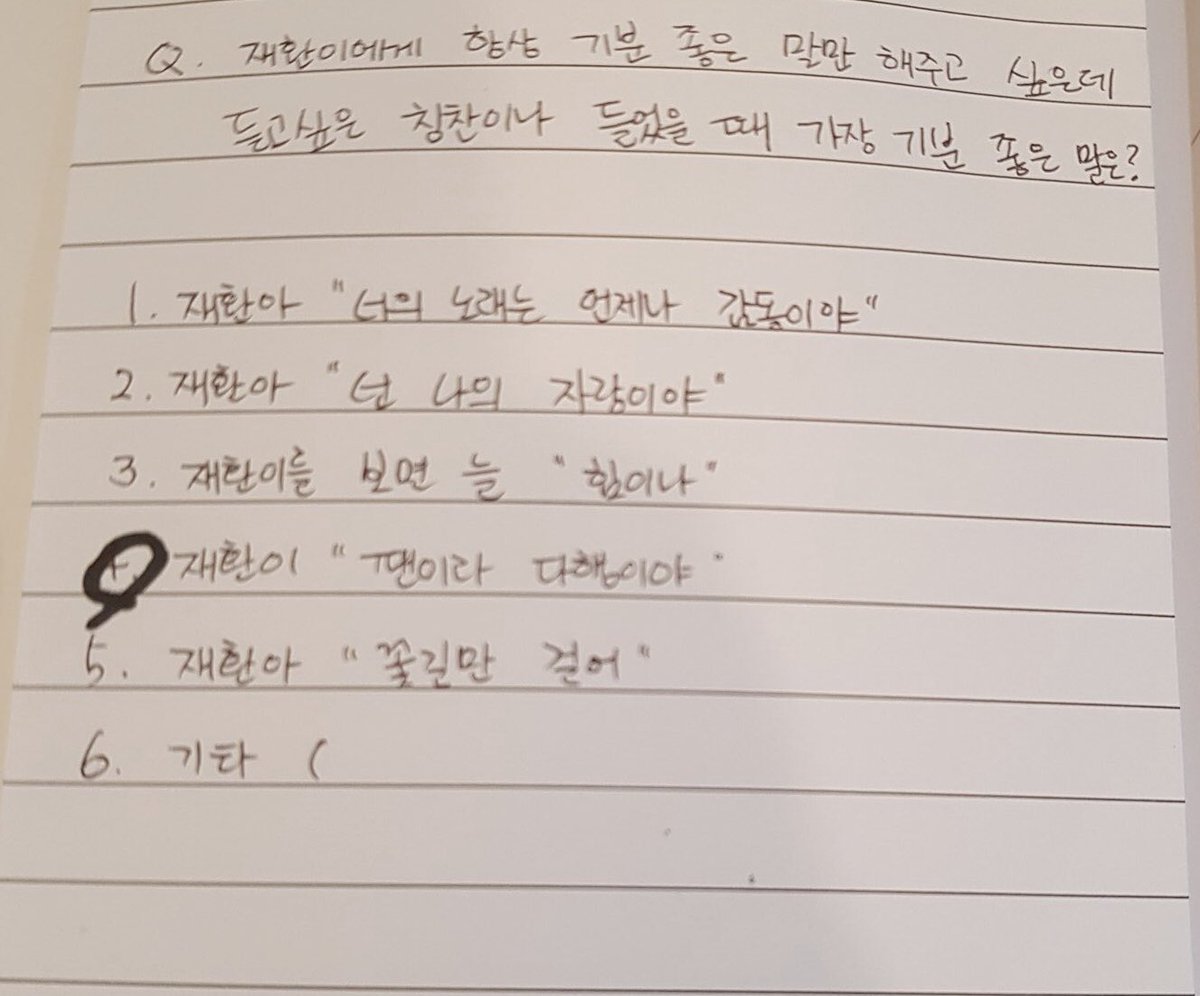 Q. 재환이에게 항상 기분 좋은 말만 해주고 싶은데
듣고싶은 칭찬이나 들었을 때 가장 기분 좋은 말은?
1. 재환아 "너의 노래는 언제나 감동이야"
2. 재환아 "넌 나의 자랑이야"
3. 재환이를 보면 늘 "힘이나"
4. 재환이 "팬이라 다행이야"
5. 재환아 "꽃길만 걸어"
6. 기타 (